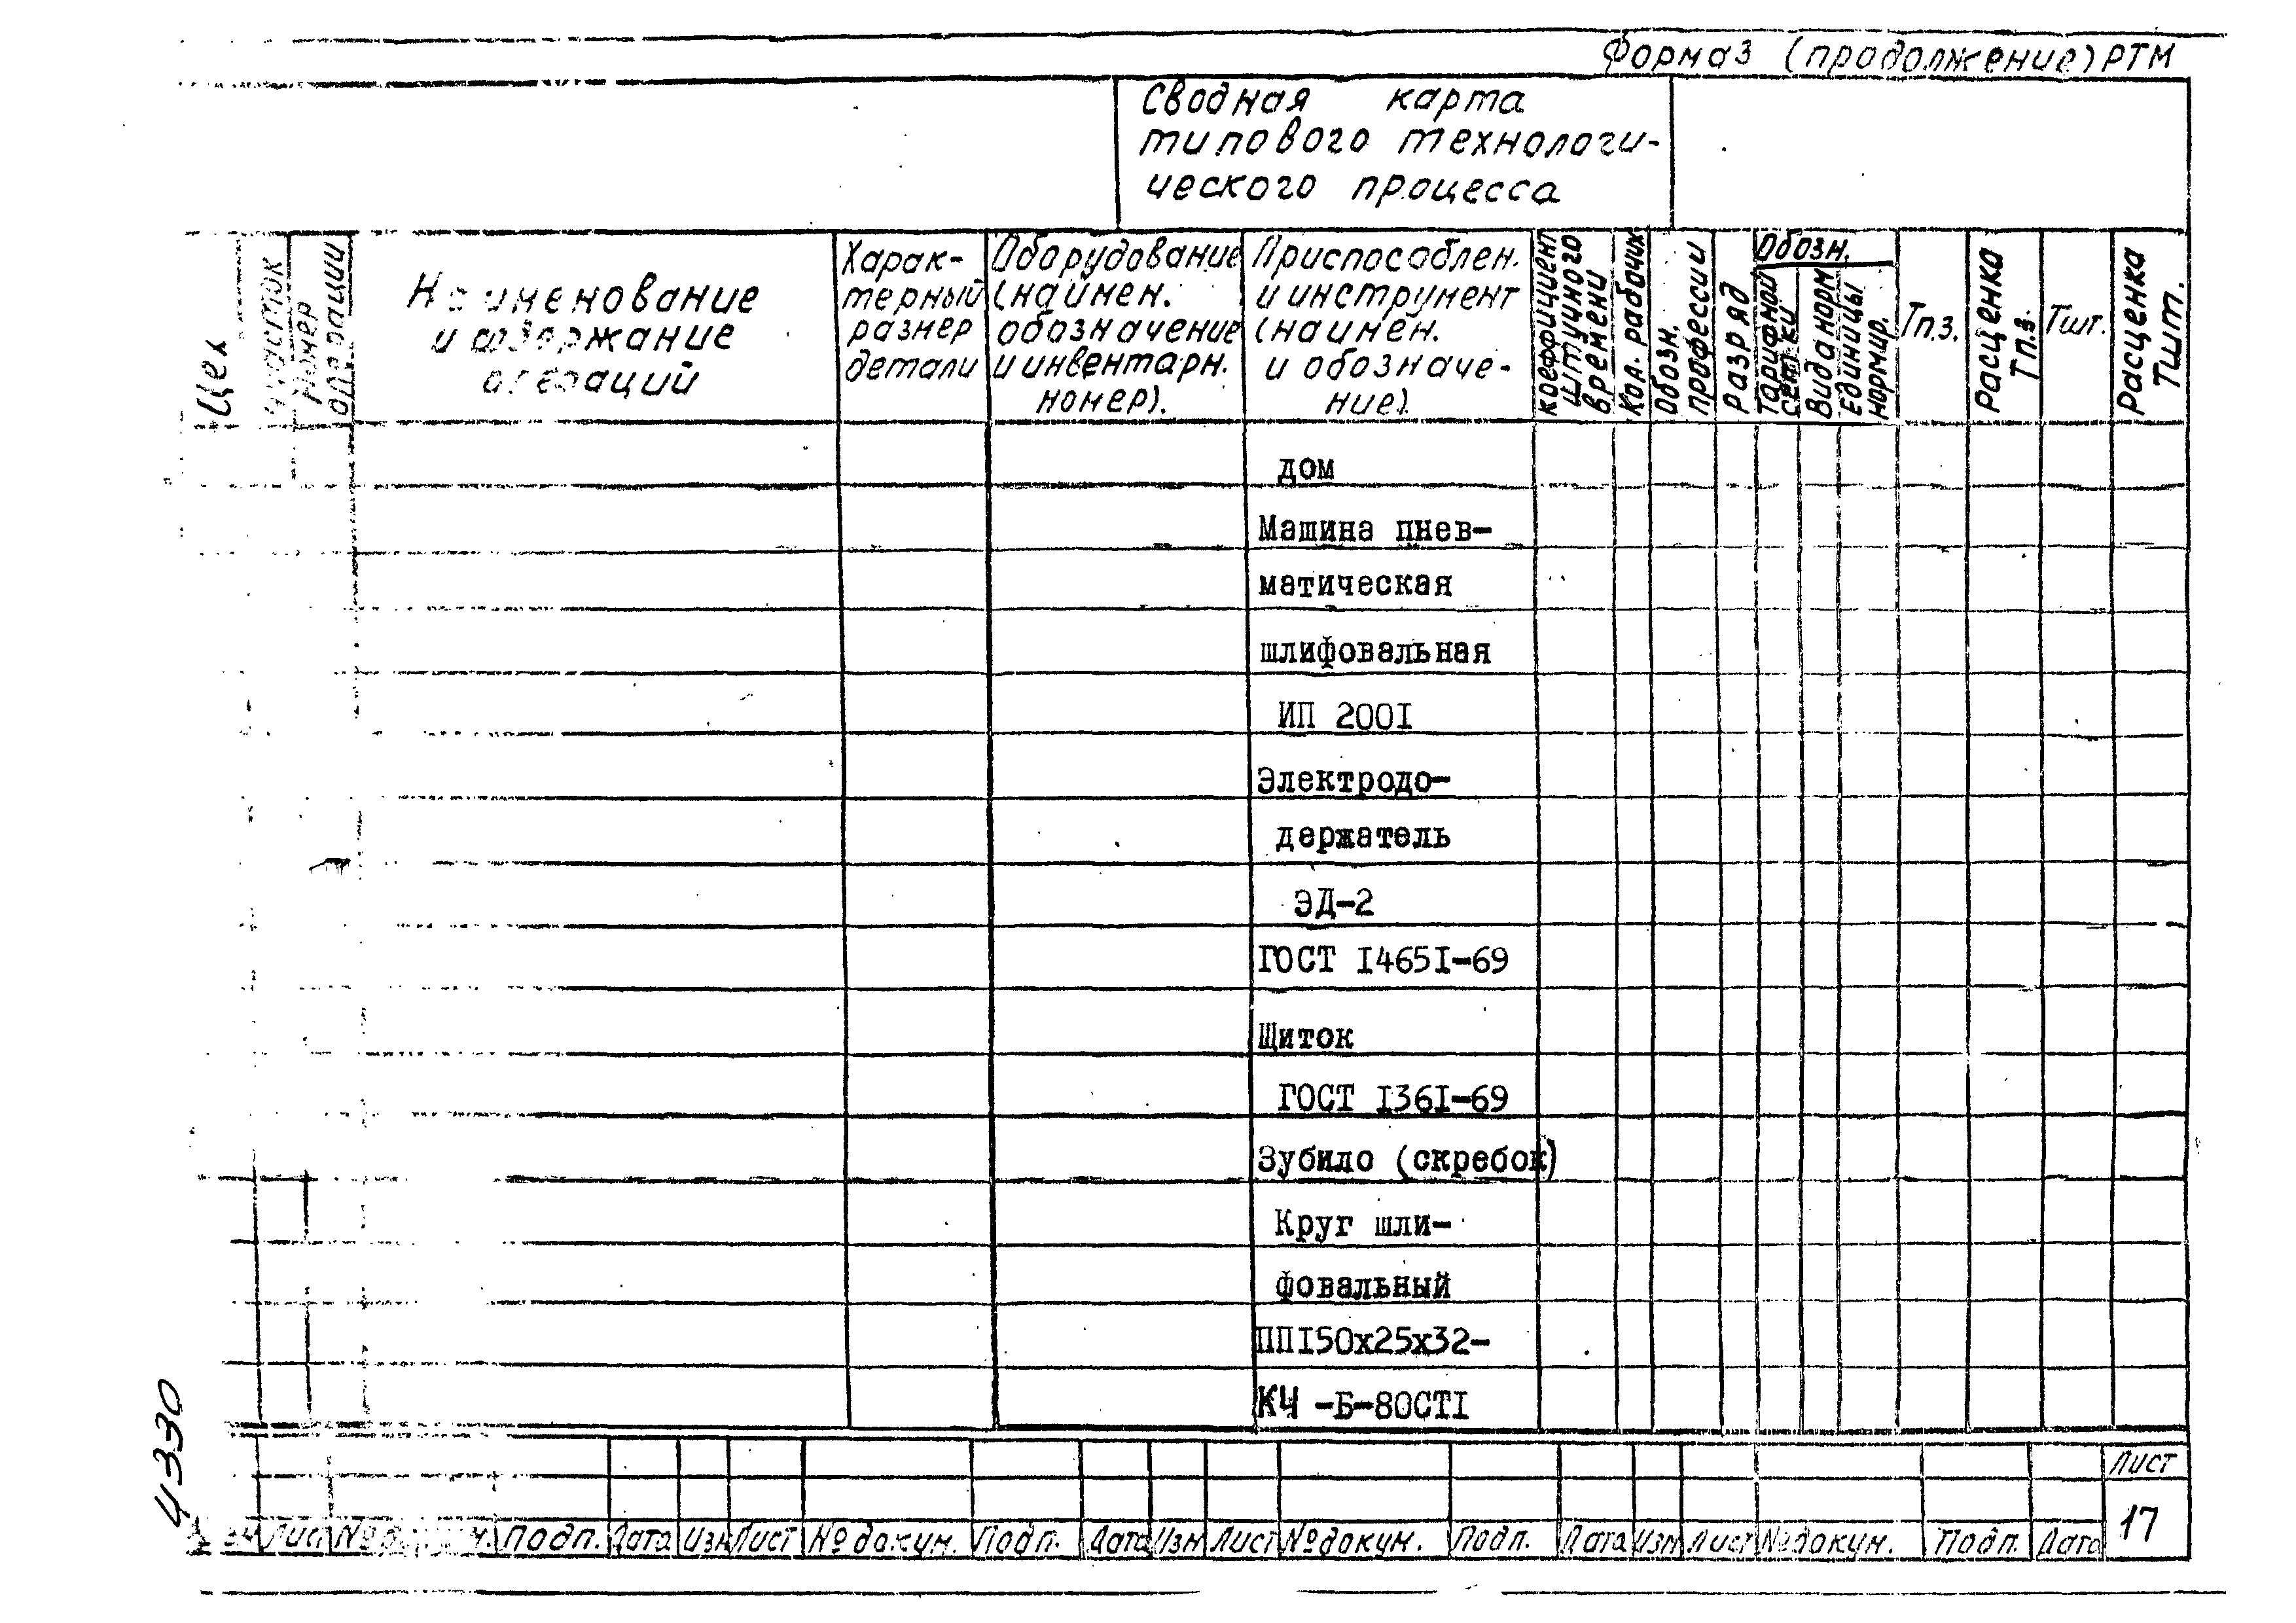 Форма3 (продолжение) РТМ
Сводная карта
типового технологи-
ческого процесса
Цех
Участок
Номер
операции
Наименование
и содержание
операций
Харак-
терный
размер
детали
Оборудование
(наимен.
обозначение
и инвентарн.
номер).
Приспособлен.
и инструмент
(наимен.
и обозначе-
ние)
коеффициент
штучного
времени
Кол. рабочих
Обозн.
профессии
Разряд
Обозн.
Тарифной
сетки
Вид норм
Единицы
нормир.
Тп.з.
Расценка
Тп.з.
Тшт.
Расценка
Тшт.
дом
Машина пнев-
матическая
шлифовальная
ИП 200I
Электродо-
держатель
ЭД-2
ГОСТ I465I-69
Щиток
ГОСТ I36I-69
Зубило (скребок)
Круг шли-
фовальный
ППI50х25х32-
КЧ -Б-80СТI
4330
Лист
17
Лист
Подп. Дата Изм Лист № докум. Подп. Дата Изм Лист № докум. Подп. Дата Изм Лист № докум. Подп. Дата